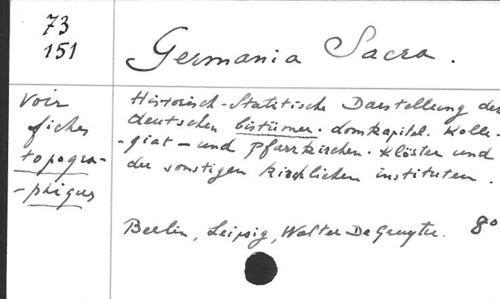 73
151
Germania Sacra.
Voir
fiches
topogra-
-phiques
Historisch-Statistische Darstellung der
deutschen bistümer. domkapitel. Kolle-
-giat- und Pfarrkirchen. Klöster und
der sonstigen kirchlichen instituten.
Berlin, Leipzig, Walter De Gruyter. 8º